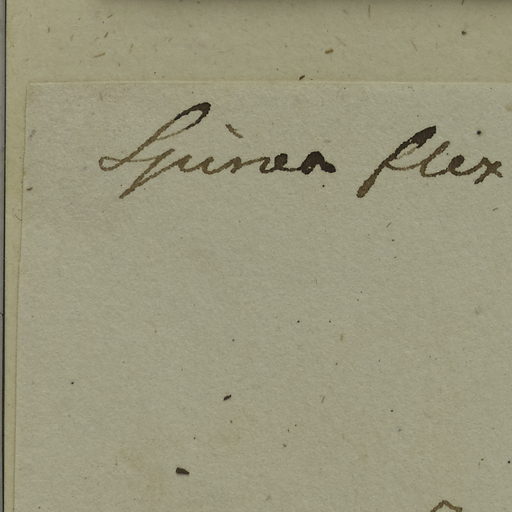 Spirea flex